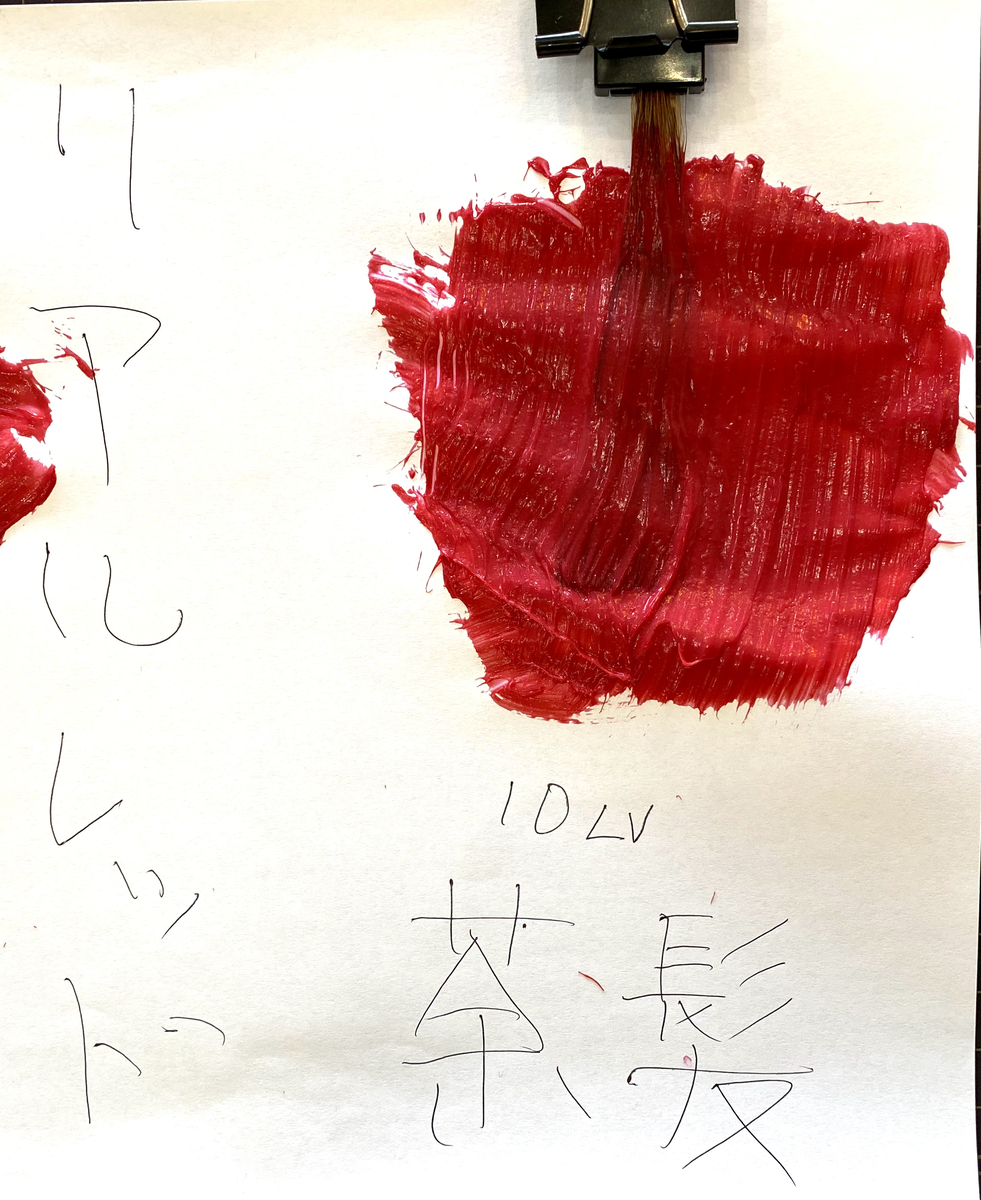 リアルレッド
10LV
茶髪